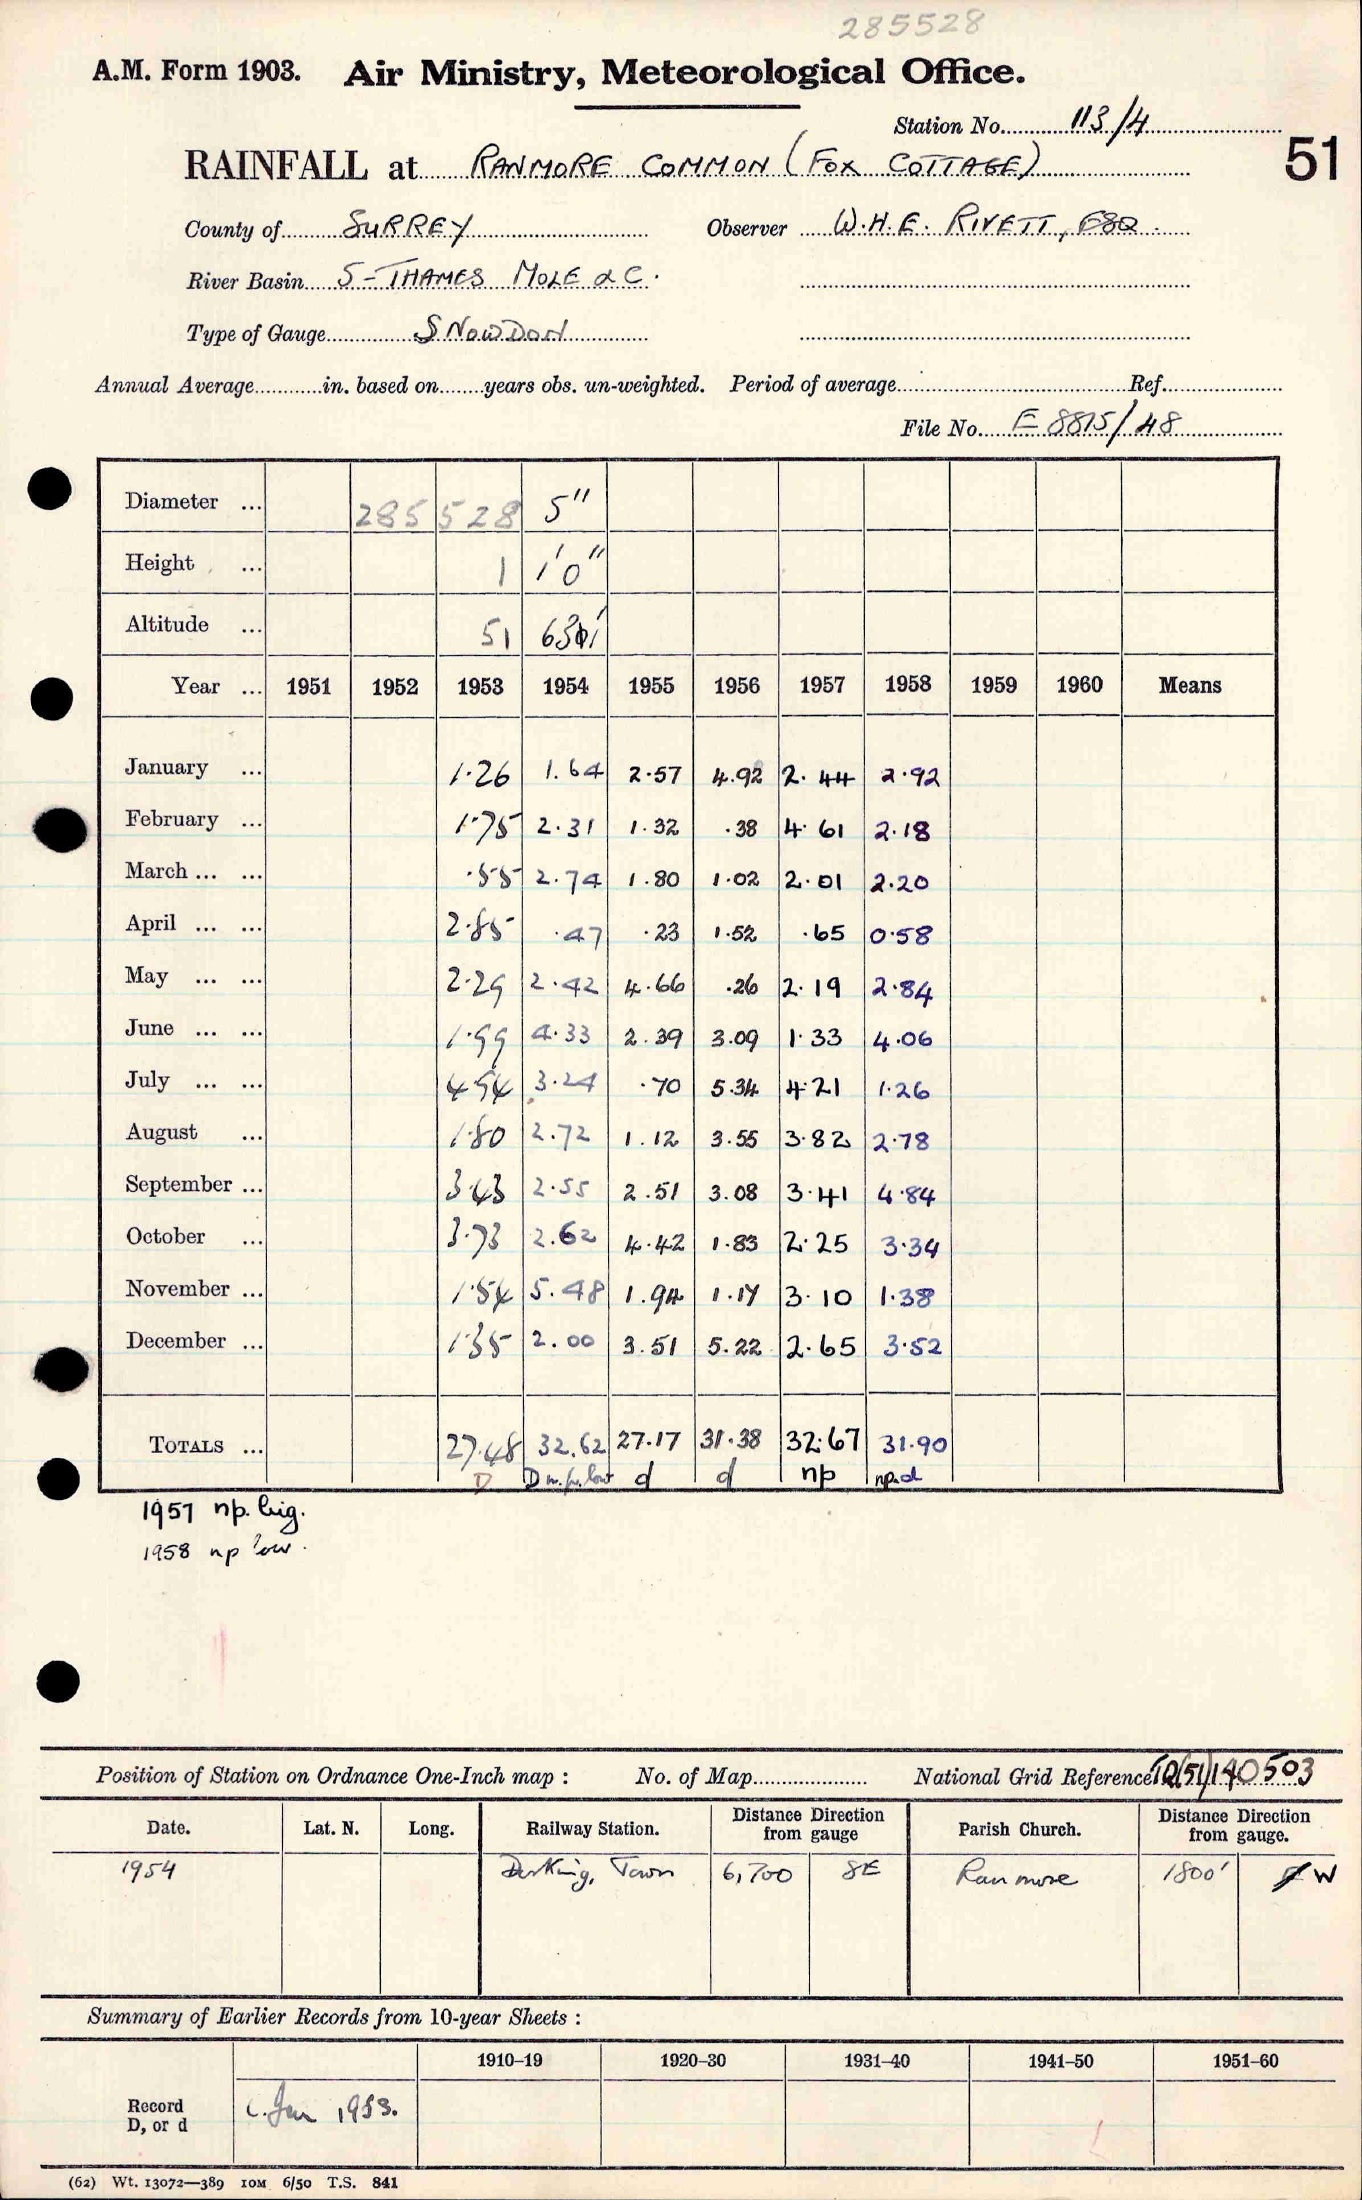 285528
A.M. Form 1903. Air Ministry, Meteorological Office.
Station No. 113/4
51
RAINFALL at RANMORE COMMON (FOX COTTAGE)
County of SURREY Observer W.H.E. RIVETT, ESQ.
River Basin 5-THAMES MOLE &C.
Type of Gauge SNOWDON
Annual Average in. based on years obs. un-weighted. Period of average Ref.
File No. E 8815/48
Diameter ... 285 528 5"
Height ... 1 1'0"
Altitude ... 51
Year ... 1951 1952 1953 1954 1955 1956 1957 1958 1959 1960 Means
January ... 1.26 1.64 2.57 4.92 2.44 2.92
February ... 1.75 2.31 1.32 .38 4.61 2.18
March ... ... .55 2.74 1.80 1.02 2.01 2.20
April ... ... 2.85 .47 .23 1.52 .65 0.58
May ... ... 2.29 2.42 4.66 .26 2.19 2.84
June ... ... 1.99 4.33 2.39 3.09 1.33 4.06
July ... ... 4.54 3.24 .70 5.34 4.21 1.26
August ... 1.80 2.72 1.12 3.55 3.82 2.78
September ... 3.43 2.55 2.51 3.08 3.41 4.84
October ... 3.73 2.62 4.42 1.83 2.25 3.34
November ... 1.54 5.48 1.94 1.17 3.10 1.38
December ... 1.35 2.00 3.51 5.22 2.65 3.52
TOTALS ... 27.48 32.62 27.17 31.38 32.67 31.90
D D n.p. low d d np np.d
1957 np. big.
1958 np low.
Position of Station on Ordnance One-Inch map : No. of Map National Grid Reference 140503
Date. Lat. N. Long. Railway Station. Distance Direction from gauge Parish Church. Distance Direction from gauge.
1954 Dorking, Town 6,700 SE Ranmore 1800' W
Summary of Earlier Records from 10-year Sheets :
1910–19 1920–30 1931–40 1941–50 1951–60
Record D, or d c. Jan 1953.
(62) Wt. 13072—389 10M 6/50 T.S. 841